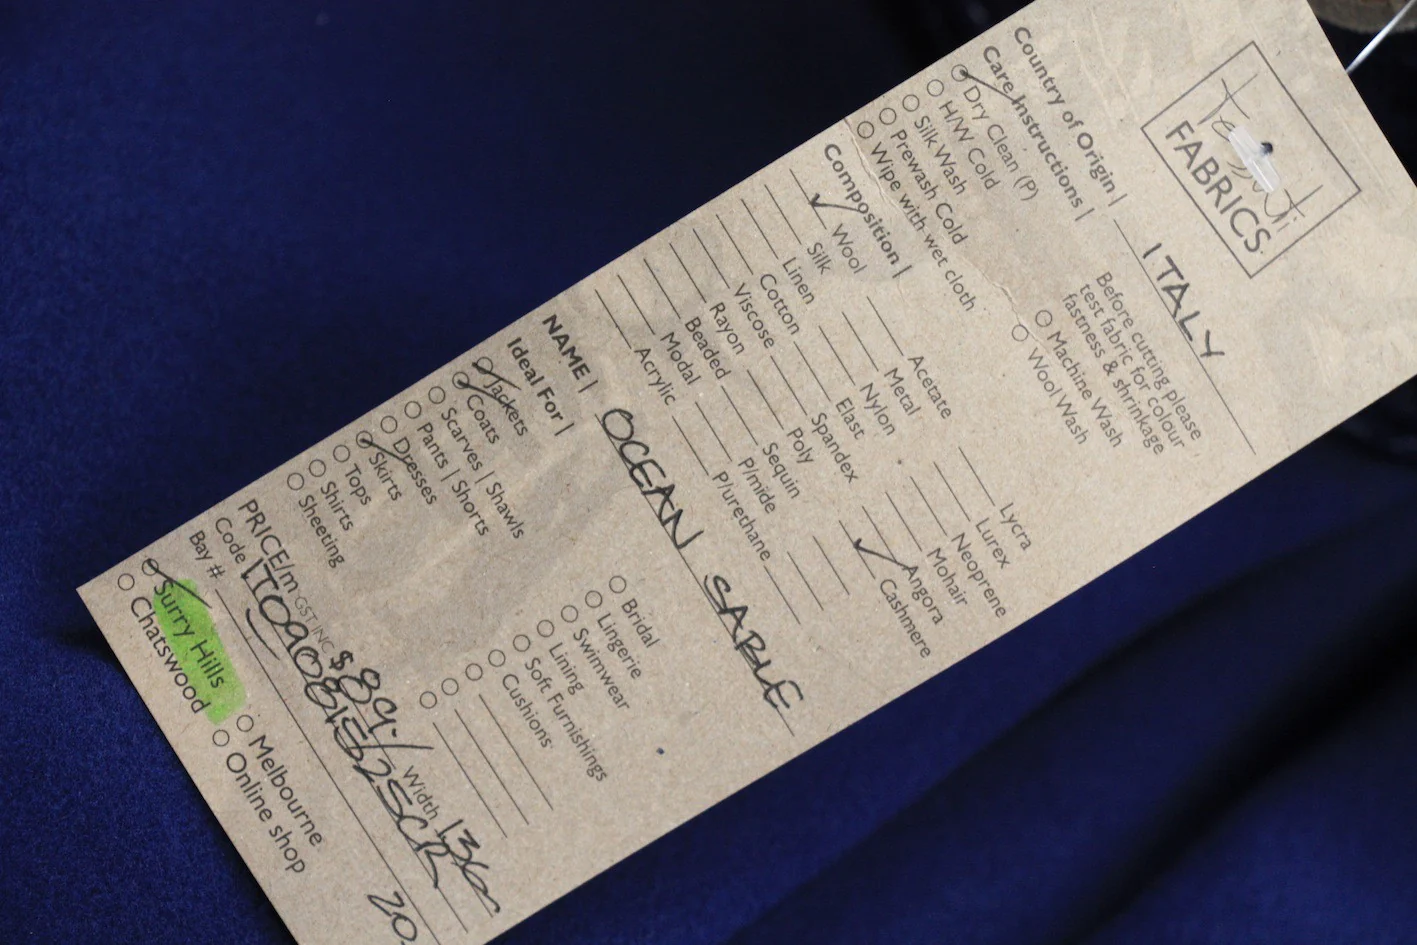 FABRICS
Country of Origin | ITALY
Care Instructions |
Dry Clean (P)
H/W Cold
Silk Wash
Prewash Cold
Wipe with wet cloth
Before cutting please
test fabric for colour
fastness & shrinkage
Machine Wash
Wool Wash
Composition |
Wool
Silk
Linen
Cotton
Viscose
Rayon
Beaded
Modal
Acrylic
Acetate
Metal
Nylon
Elast
Spandex
Poly
Sequin
P/mide
P/urethane
Lycra
Lurex
Neoprene
Mohair
Angora
Cashmere
NAME | OCEAN SABLE
Ideal For |
Jackets
Coats
Scarves | Shawls
Pants | Shorts
Dresses
Skirts
Tops
Shirts
Sheeting
Bridal
Lingerie
Swimwear
Lining
Soft Furnishings
Cushions
PRICE/m GST INC $89./ Width 136
Code
Bay # 20.
Surry Hills
Chatswood
Melbourne
Online shop